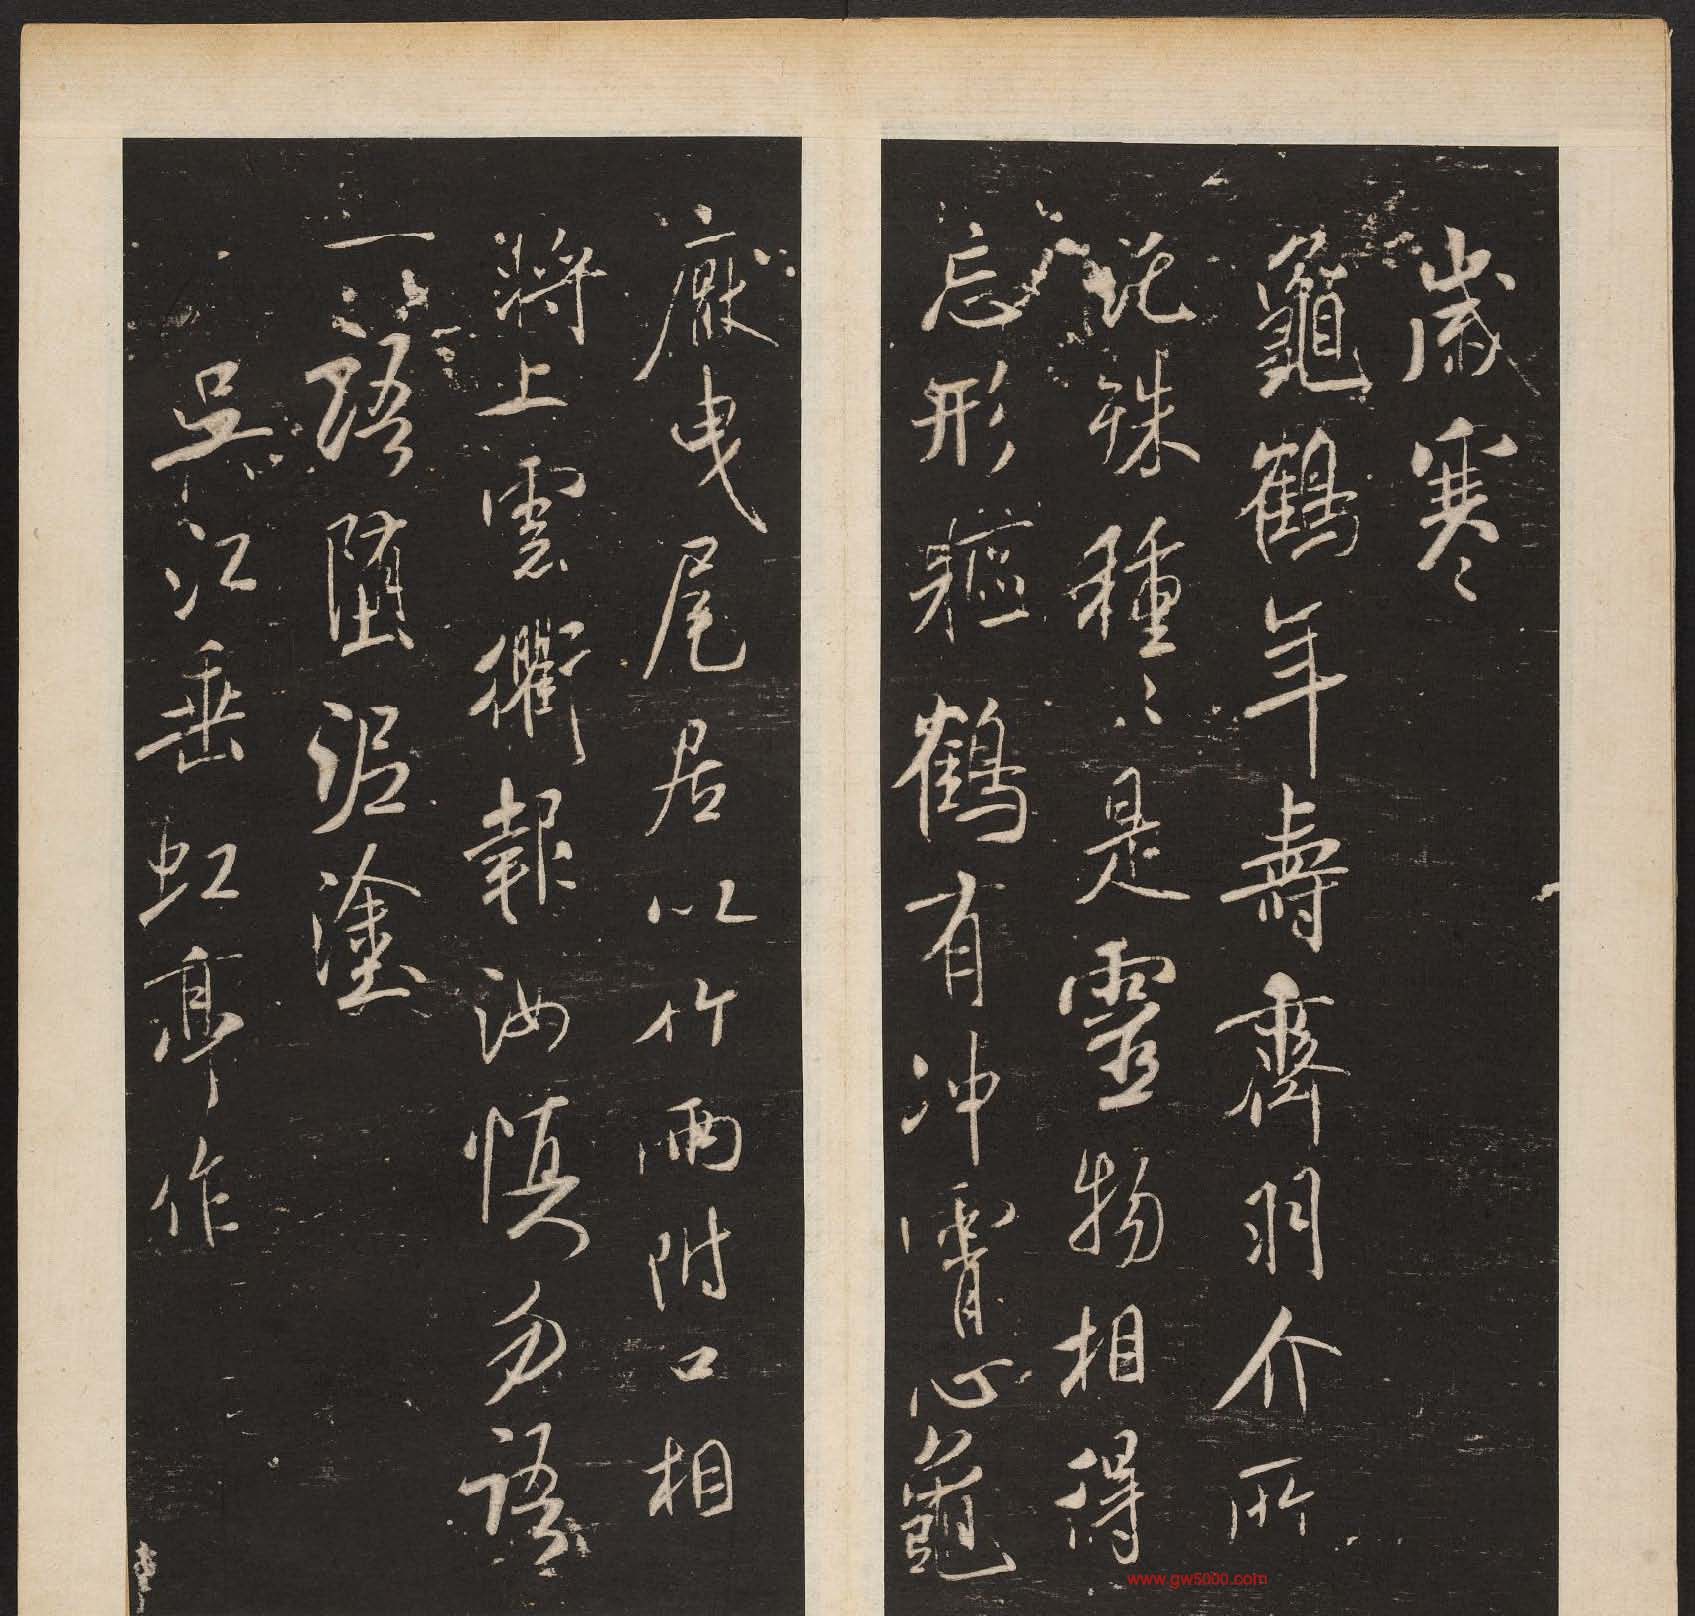 歲寒
龜鶴年壽齊羽介所
託殊種種是靈物相得
忘形軀鶴有冲霄心龜
厭曳尾居以竹兩附口相
將上雲衢報汝慎勿語
一語墮泥塗
吴江垂虹亭作
www.gw5000.com